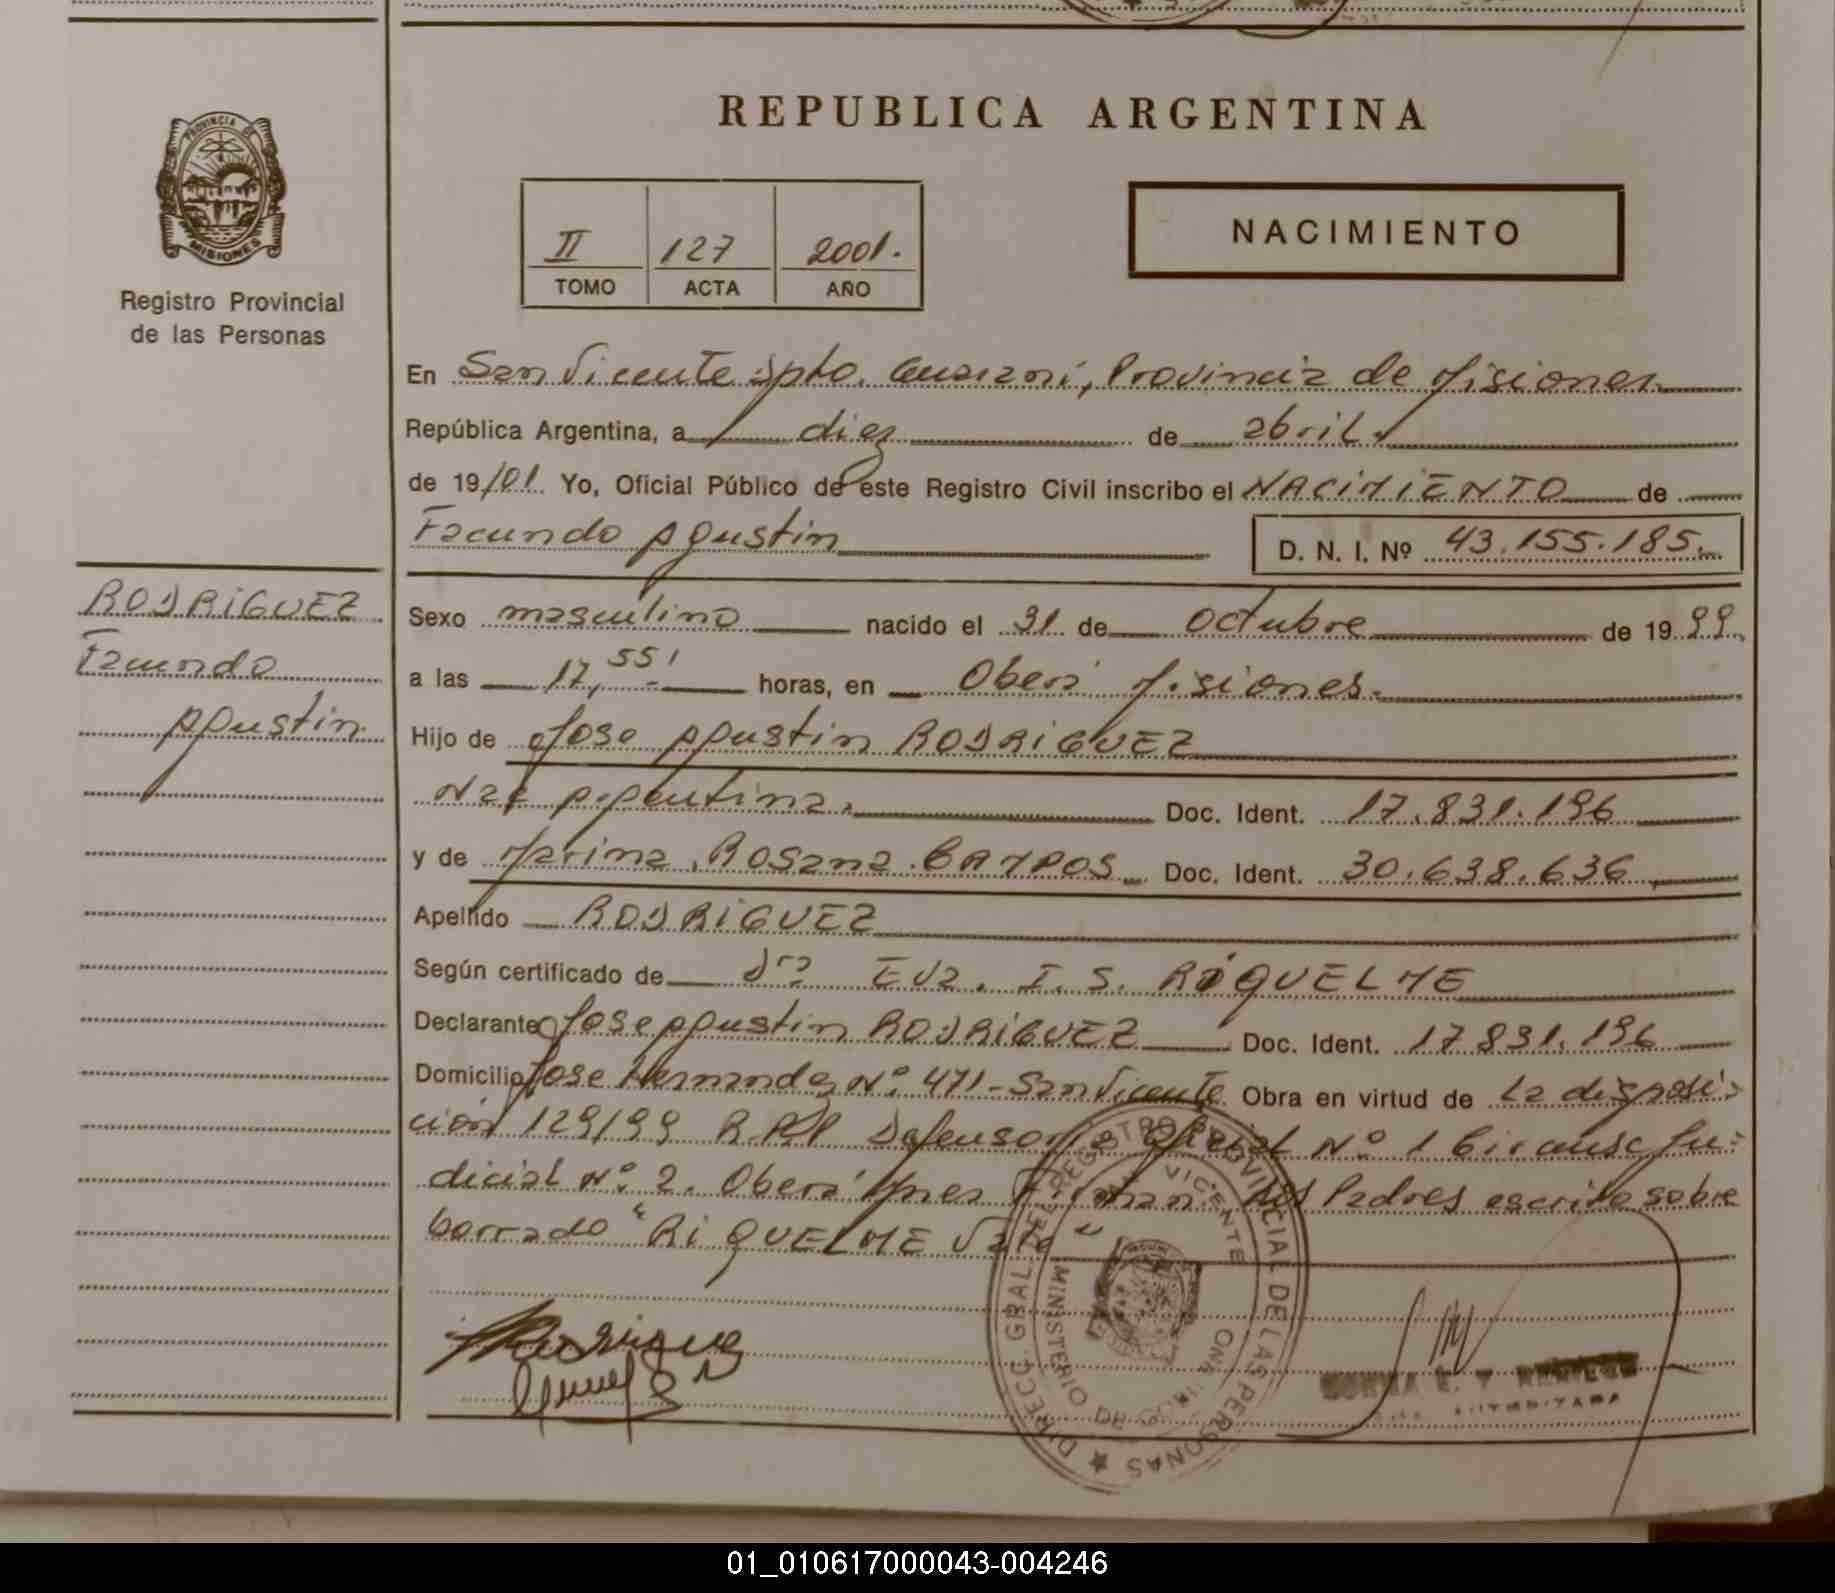 REPUBLICA ARGENTINA
PROVINCIA DE
MISIONES
Registro Provincial
de las Personas
II 127 2001.
TOMO ACTA AÑO
NACIMIENTO
En San Vicente Dpto. Guaraní, Provincia de Misiones
República Argentina, a diez de abril.
de 19/01. Yo, Oficial Público de este Registro Civil inscribo el NACIMIENTO de
Facundo Agustin
D. N. I. Nº 43.155.185.
RODRIGUEZ
Facundo
Agustin.
Sexo masculino nacido el 31 de Octubre de 1999.
a las 17,55' horas, en Oberá Misiones.
Hijo de Jose Agustin RODRIGUEZ
Nac Argentina. Doc. Ident. 17.831.196
y de Marina Rosana CAMPOS Doc. Ident. 30.638.636
Apellido RODRIGUEZ
Según certificado de Dra Eva. I. S. RIQUELME
Declarante Jose Agustin RODRIGUEZ Doc. Ident. 17.831.196
Domicilio Jose Hernandez Nº 471 - San Vicente Obra en virtud de La disposi-
ción 129/99 R.P.P Defensoria Oficial Nº 1 Circunsc Ju-
dicial Nº 2. Oberá Mnes Firman Los Padres escrito sobre
borrado "RIQUELME Vale"
DIRECC. GRAL. DEL REGISTRO PROVINCIAL DE LAS PERSONAS
VICENTE
MINISTERIO DE
01_010617000043-004246